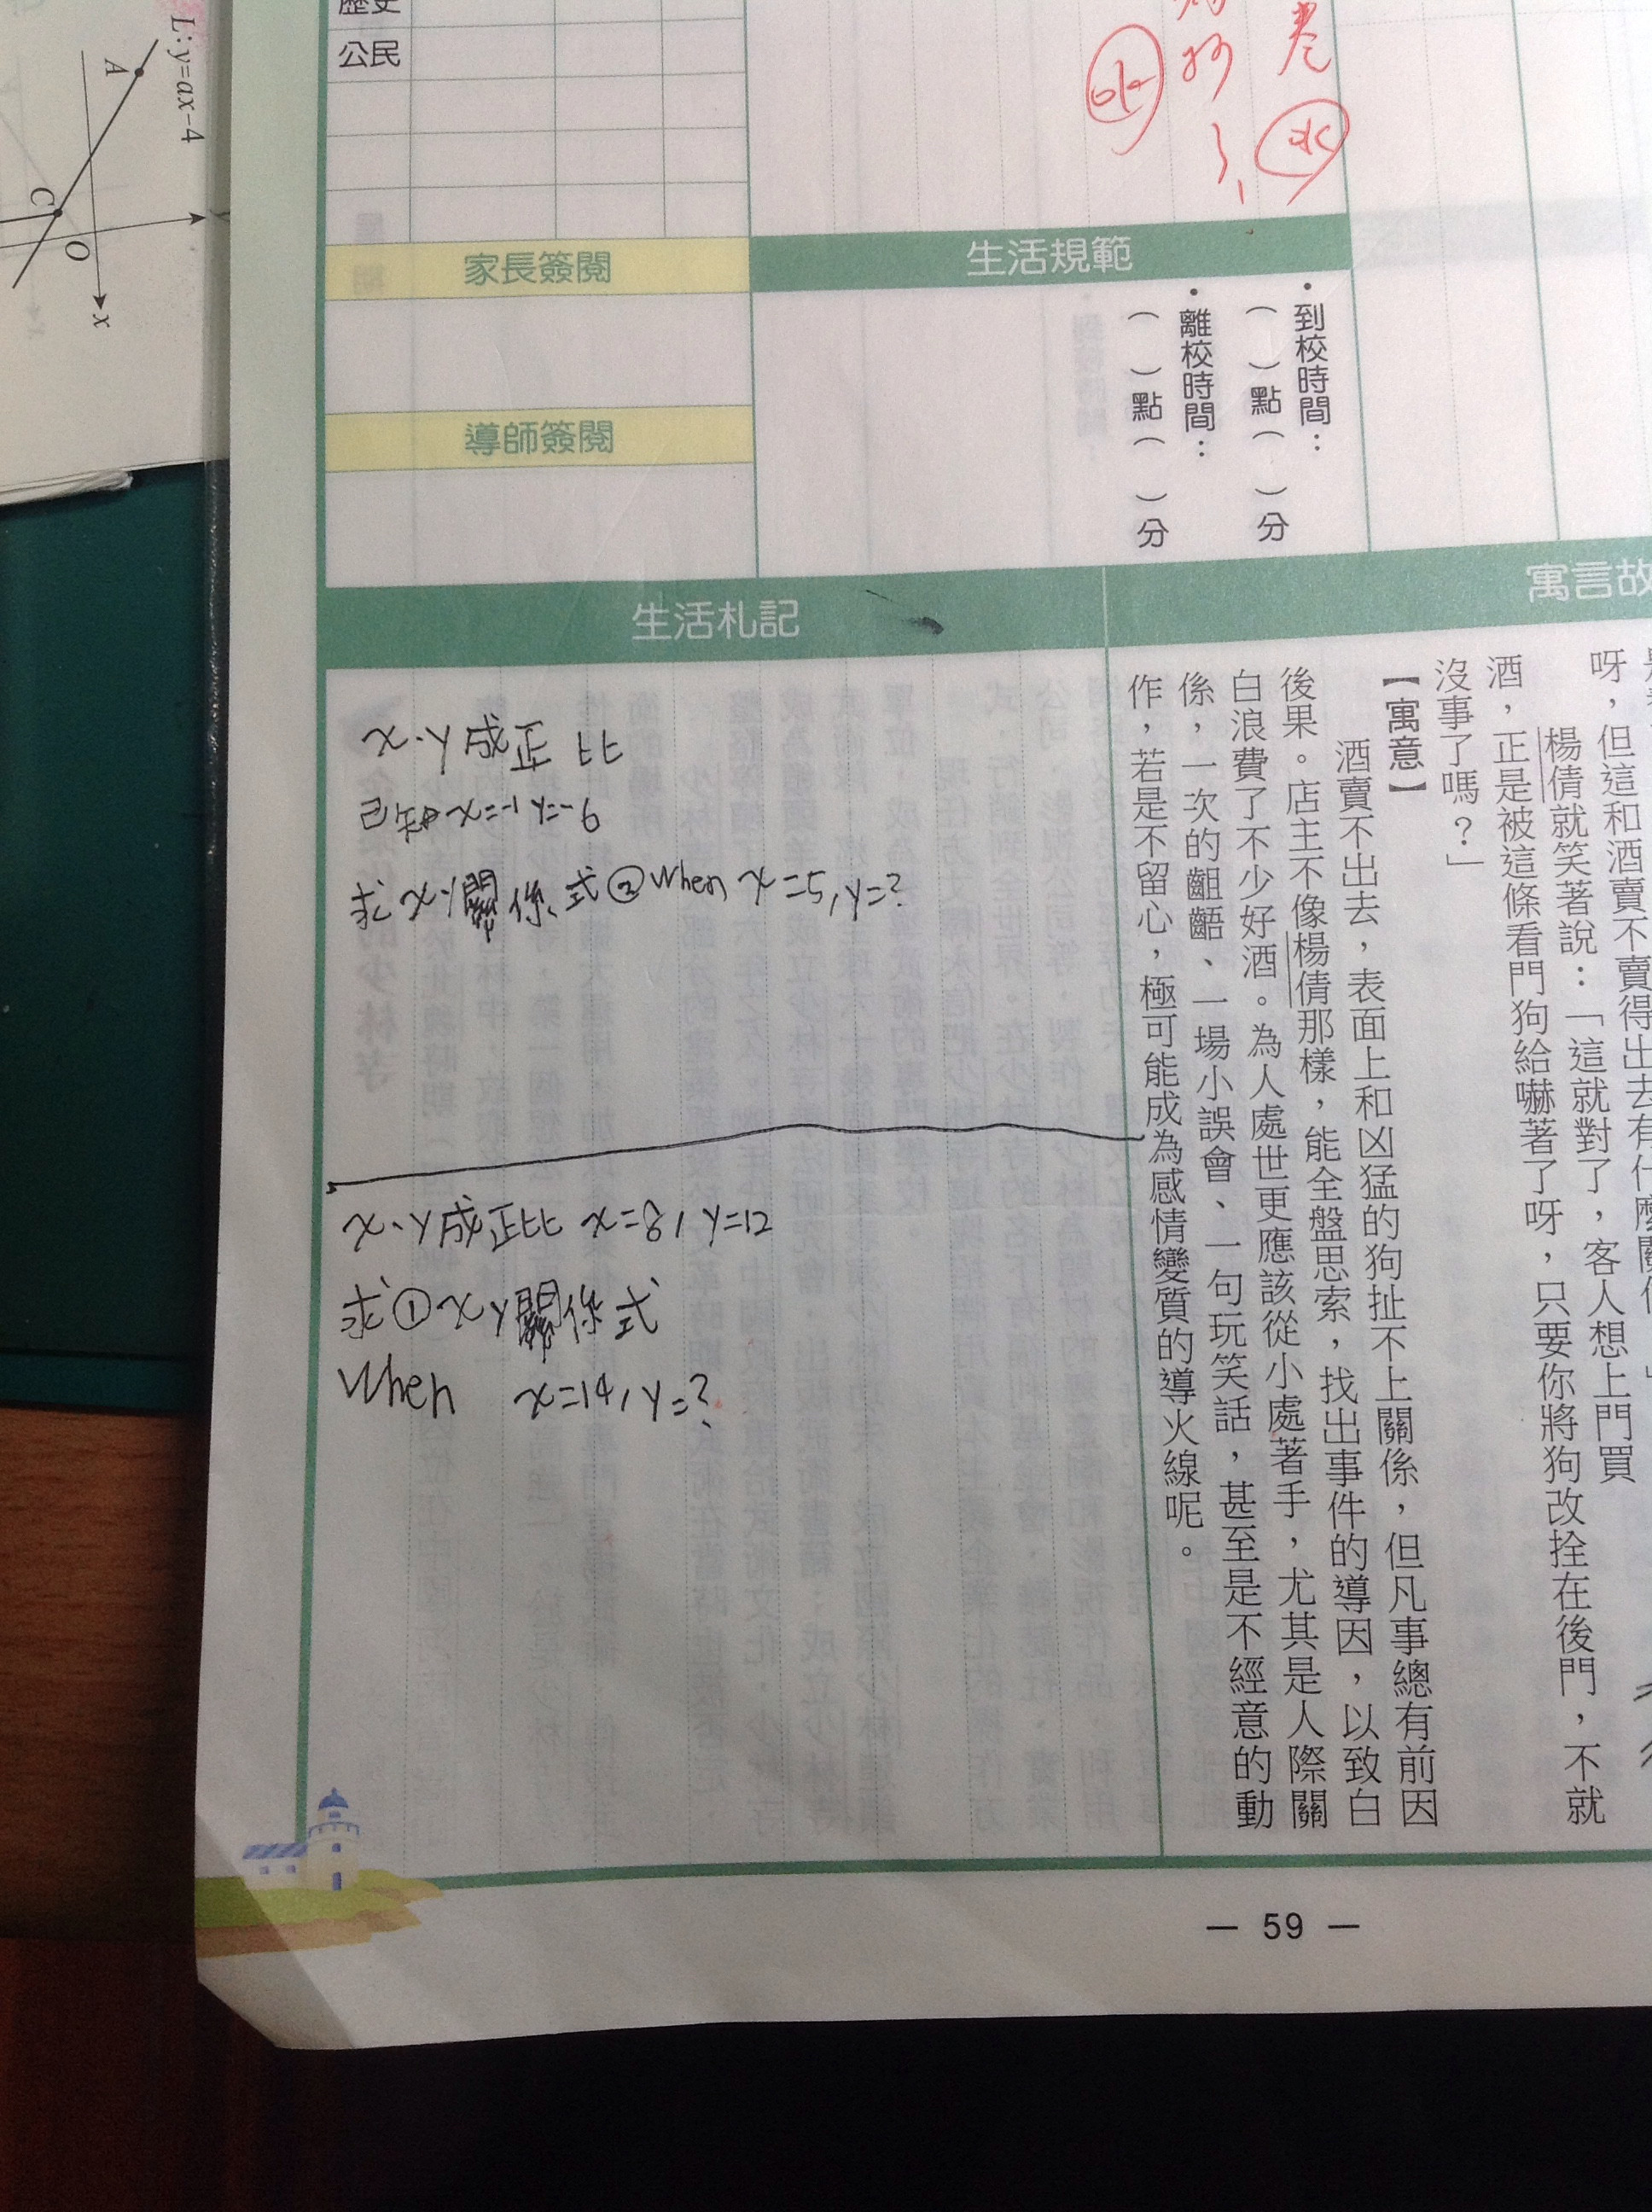 L：y=ax-4
A
C
O
x
歷史
公民
家長簽閱
導師簽閱
生活規範
・到校時間：
（　）點（　）分
・離校時間：
（　）點（　）分
生活札記
x、y成正比
已知x=-1 y=-6
求x、y關係式②When x=5, y=?
x、y成正比 x=8, y=12
求①x y關係式
When x=14, y=?
呀，但這和酒賣不賣得出去有什麼關
楊倩就笑著說：「這就對了，客人想上門買
酒，正是被這條看門狗給嚇著了呀，只要你將狗改拴在後門，不就
沒事了嗎？」
【寓意】
酒賣不出去，表面上和凶猛的狗扯不上關係，但凡事總有前因
後果。店主不像楊倩那樣，能全盤思索，找出事件的導因，以致白
白浪費了不少好酒。為人處世更應該從小處著手，尤其是人際關
係，一次的齟齬、一場小誤會、一句玩笑話，甚至是不經意的動
作，若是不留心，極可能成為感情變質的導火線呢。
寓言故
— 59 —